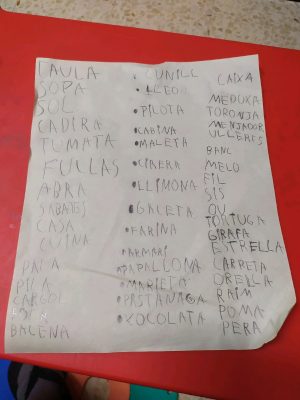 TAULA
SOPA
SOL
CADIRA
TUMATA
FULLAS
ABRA
SABATES
CASA
CUINA
PILA
CARGOL
BACENA
CUNILL
LLEO
PILOTA
CABINA
MALETA
CIRERA
LLIMONA
GALETA
FARINA
ARMARI
PAPALLONA
MARIETA
PASTANAGA
XOCOLATA
CAIXA
MEDUXA
TORONJA
MENJADOR
ULLERES
BANC
MELO
FIL
SIS
OU
TORTUGA
GIRAFA
ESTRELLA
CARPETA
ORELLA
RAIM
POMA
PERA